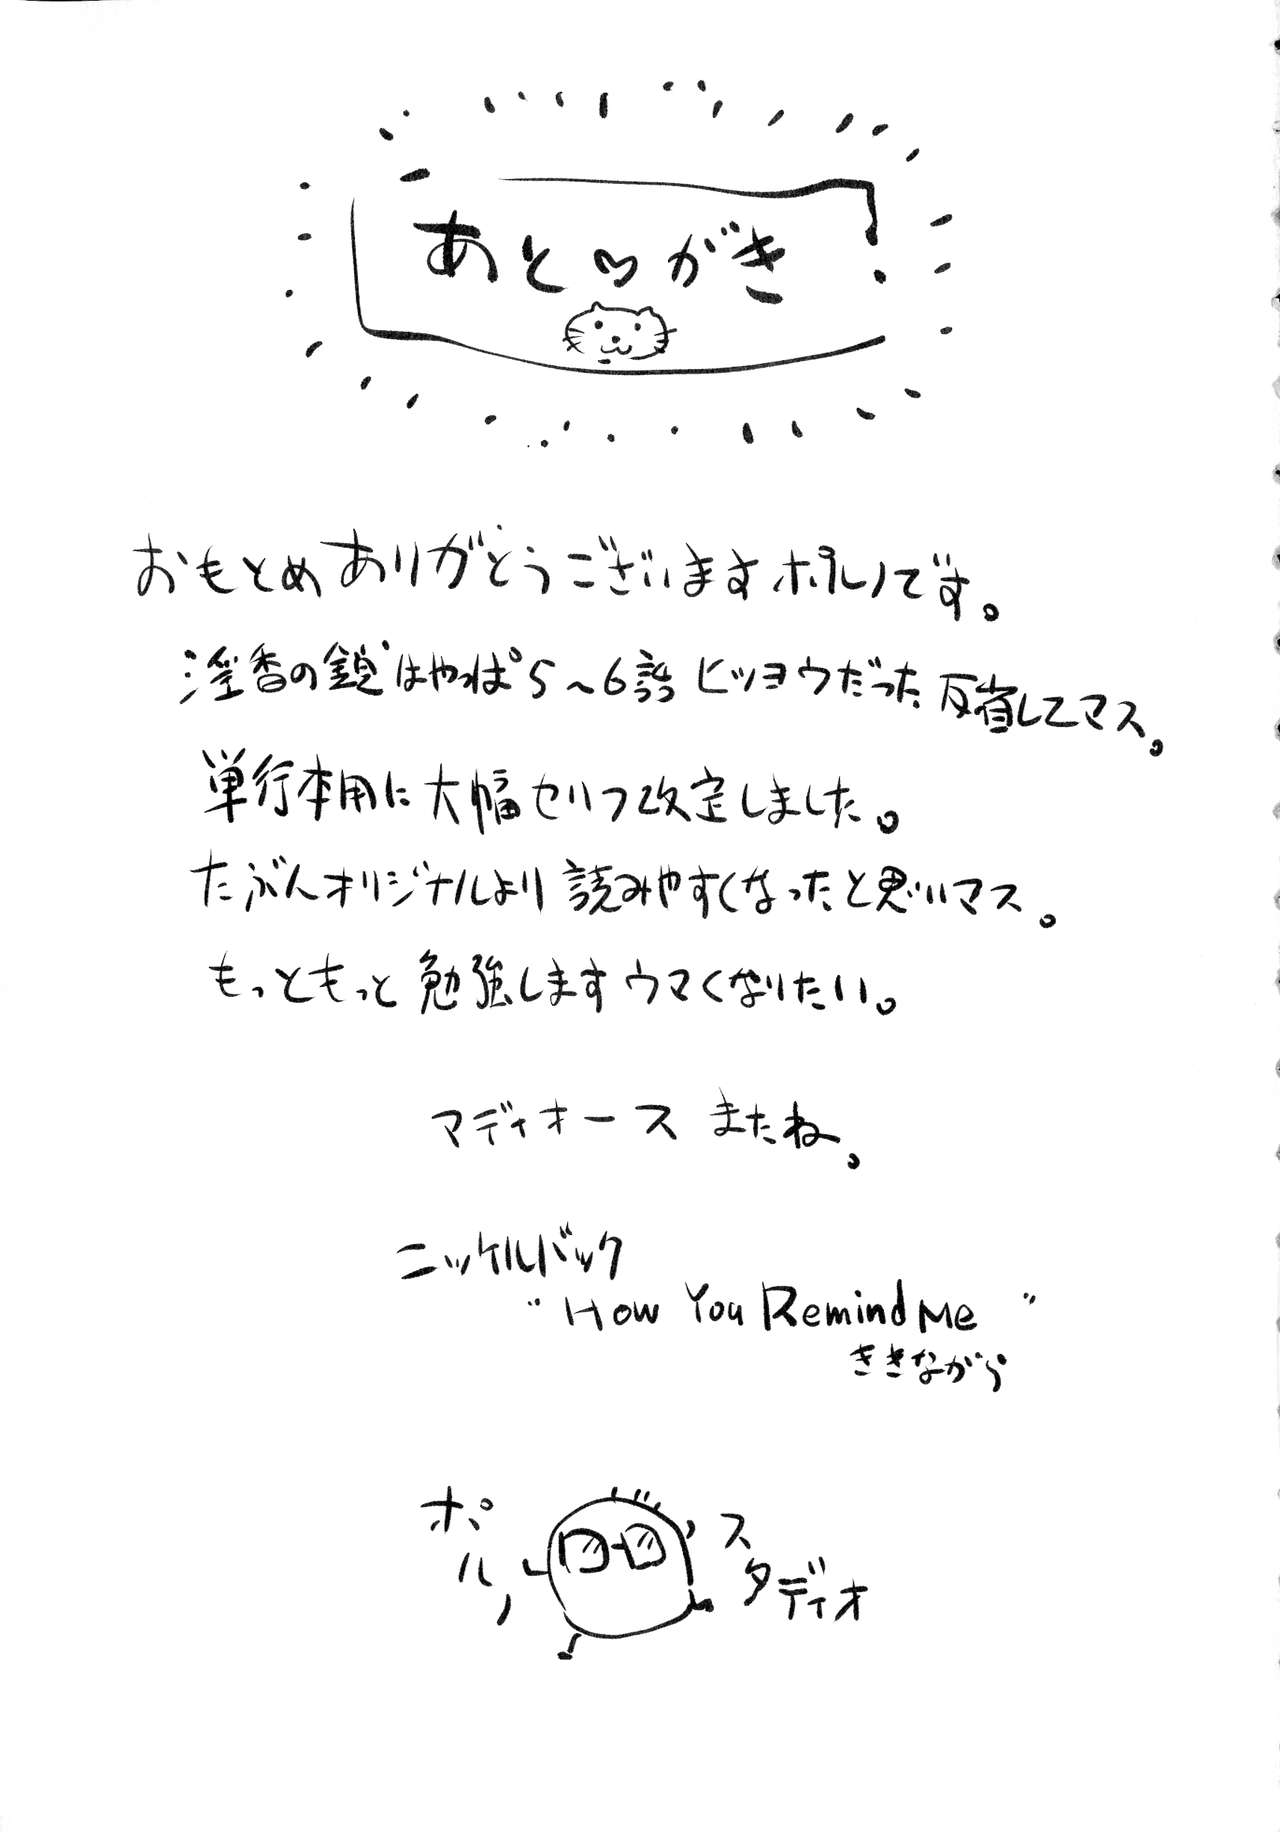 あと♡がき
おもとめありがとうございますポルノです。
淫香の鎖はやっぱ5~6話ヒツヨウだった反省してマス。
単行本用に大幅セリフ改定しました。
たぶんオリジナルより読みやすくなったと思いマス。
もっともっと勉強しますウマくなりたい。
マディオース またね。
ニッケルバック
"How You Remind Me"
ききながら
ポルノ スタディオ